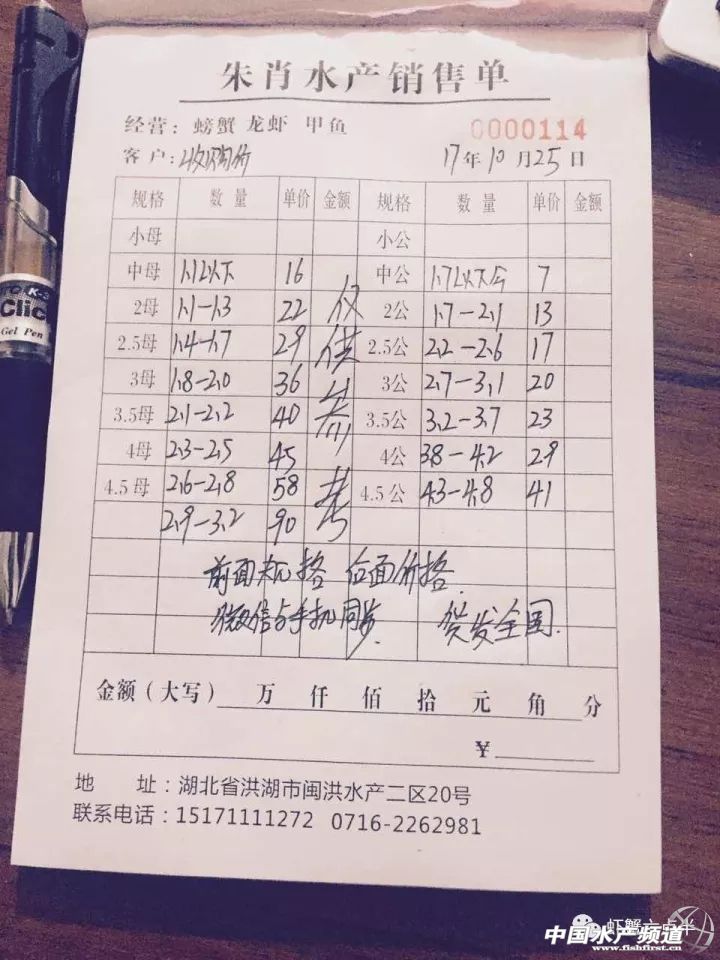 朱肖水产销售单
经营: 螃蟹 龙虾 甲鱼 0000114
客户: 收购价 17年10月25日
规格 数量 单价 金额 规格 数量 单价 金额
小母 小公
中母 1.1以下 16 中公 1.7以下公 7
2母 1.1-1.3 22 2公 1.7-2.1 13
2.5母 1.4-1.7 29 2.5公 2.2-2.6 17
3母 1.8-2.0 36 3公 2.7-3.1 20
3.5母 2.1-2.2 40 3.5公 3.2-3.7 23
4母 2.3-2.5 45 4公 3.8-4.2 29
4.5母 2.6-2.8 58 4.5公 4.3-4.8 41
2.9-3.2 90
仅供参考
前面规格 后面价格
微信与手机同步 货发全国.
金额(大写) 万 仟 佰 拾 元 角 分
¥
地 址:湖北省洪湖市闽洪水产二区20号
联系电话:15171111272 0716-2262981
虾蟹六点半
中国水产频道
www.fishfirst.cn
Click
Gel Pen